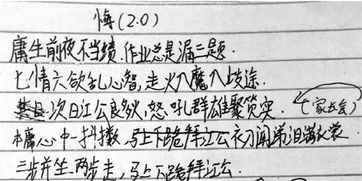 悔(2.0)
庸生前夜不当绩.作业总是漏二题.
七情六欲乱心智,走火入魔入歧途.
次日江公良多火,怒吼群雄聚贤实.(家长会)
本庸心中一抖撒,马上下跪拜江公 初闻涕泪满衣裳
三步并生两步走,马上下跪拜江公.